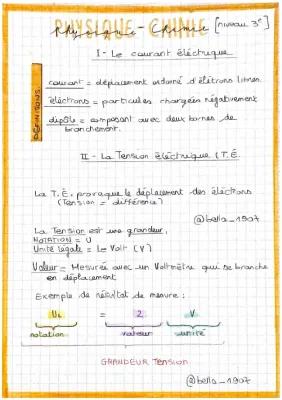 PHYSIQUE - CHIMIE [niveau 3e]
Physique - Chimie
I - Le courant électrique
DÉFINITIONS
courant = déplacement ordonné d'életrons libres.
électrons = particules chargées négativement
dipôle = composant avec deux bornes de
branchement.
II - La Tension électrique (T.E.
La T.E. provoque le déplacement des électrons
(Tension = différence)
@bella_1907
La Tension est une grandeur,
NOTATION = U
Unité légale = Le Volt (V)
Valeur = Mesurée avec un Voltmètre qui se branche
en déplacement
Exemple de résultat de mesure :
= 2 V
notation valeur unité
GRANDEUR Tension
@bella_1907